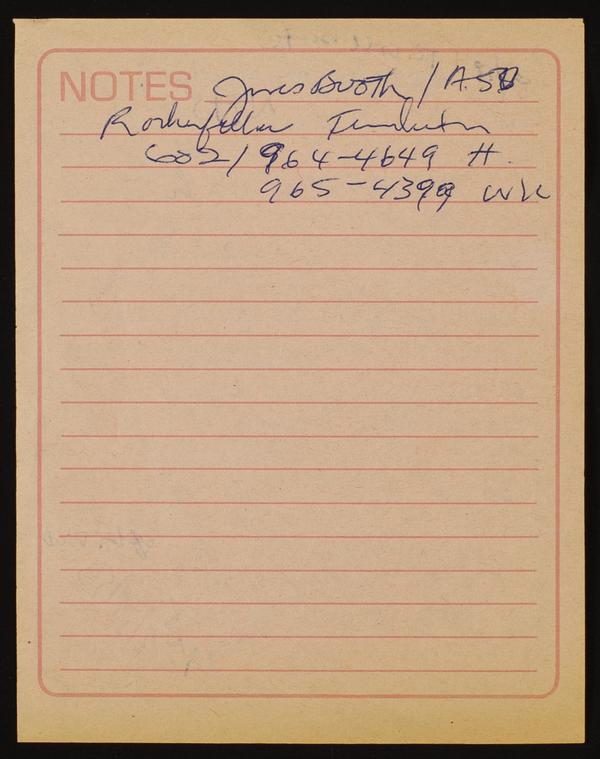 NOTES James Booth / A.S.B
Rockefeller Foundation
602/964-4649 H.
965-4399 WK